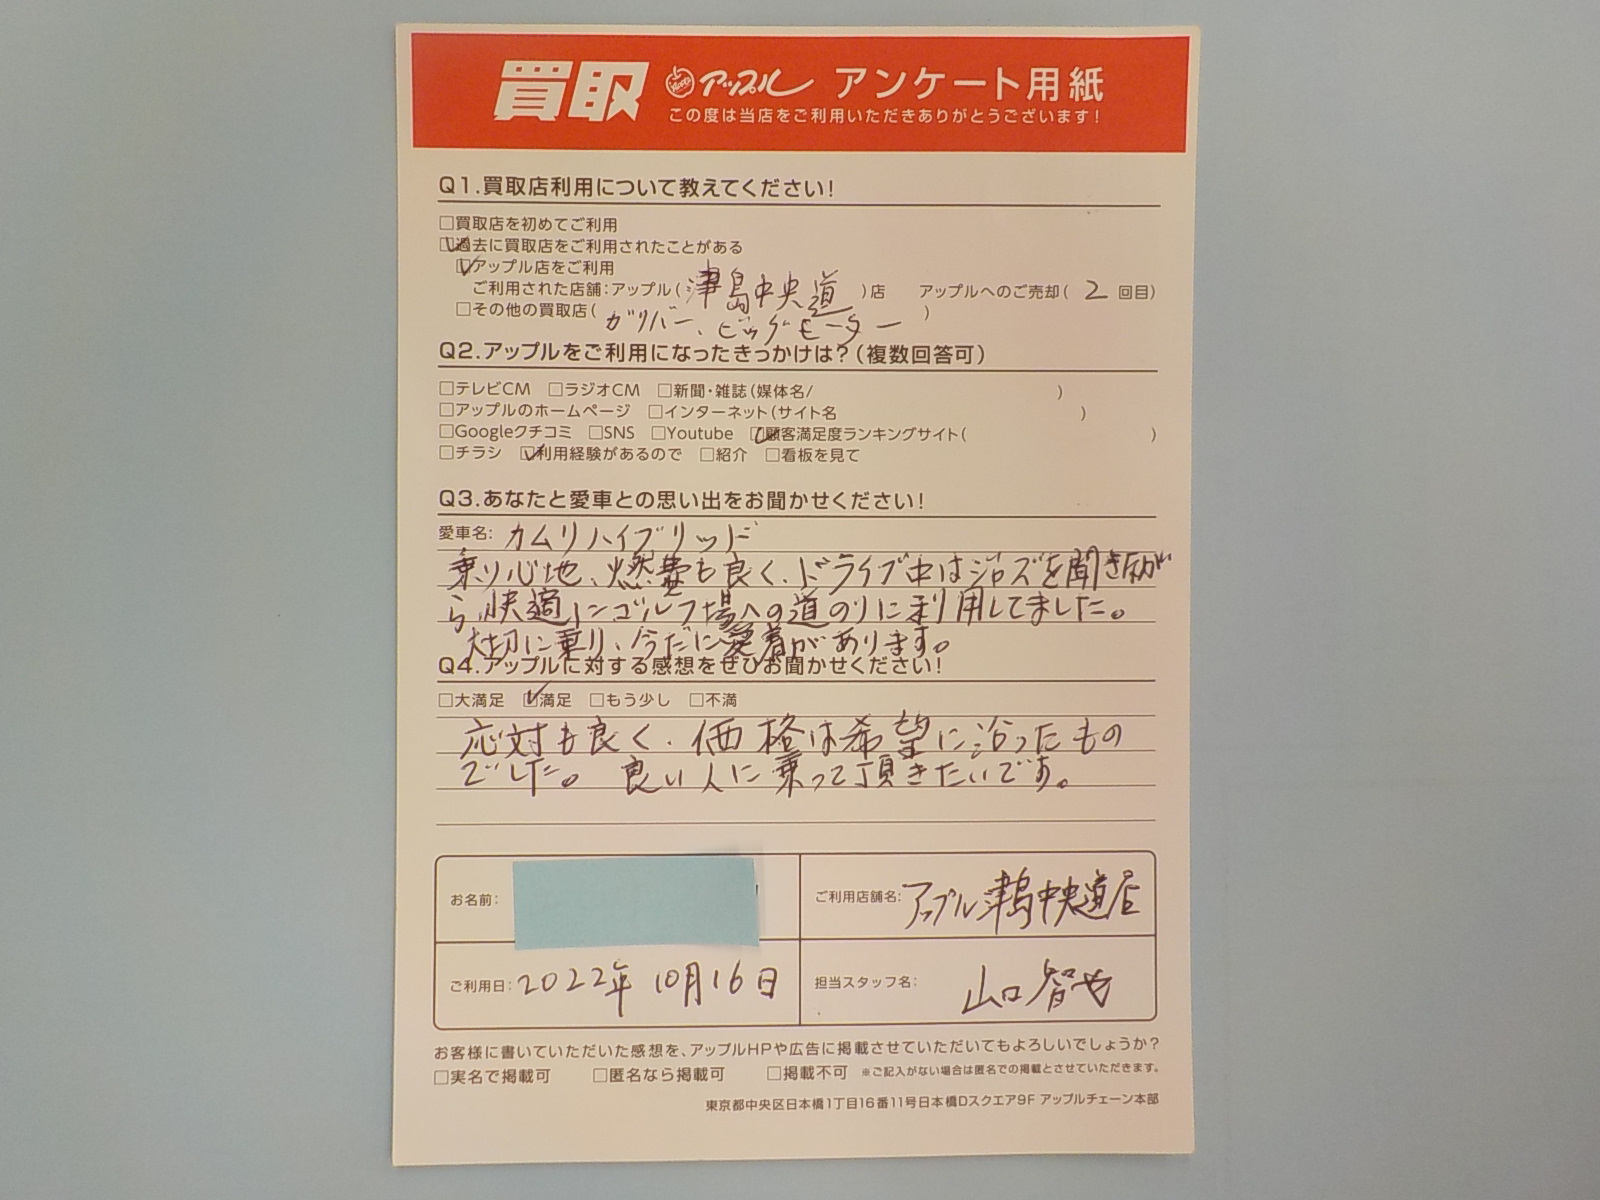 買取 アップル アンケート用紙
この度は当店をご利用いただきありがとうございます!
Q1.買取店利用について教えてください!
□買取店を初めてご利用
☑過去に買取店をご利用されたことがある
☑アップル店をご利用
ご利用された店舗:アップル(津島中央道)店 アップルへのご売却(2回目)
□その他の買取店(ガリバー、ビッグモーター)
Q2.アップルをご利用になったきっかけは?(複数回答可)
□テレビCM □ラジオCM □新聞・雑誌(媒体名/ )
□アップルのホームページ □インターネット(サイト名 )
□Googleクチコミ □SNS □Youtube ☑顧客満足度ランキングサイト( )
□チラシ ☑利用経験があるので □紹介 □看板を見て
Q3.あなたと愛車との思い出をお聞かせください!
愛車名: カムリハイブリッド
乗り心地、燃費も良く、ドライブ中はジャズを聞きなが
ら、快適にゴルフ場への道のりに利用してました。
大切に乗り、今だに愛着があります。
Q4.アップルに対する感想をぜひお聞かせください!
□大満足 ☑満足 □もう少し □不満
応対も良く、価格は希望に沿ったもの
でした。良い人に乗って頂きたいです。
お名前:
ご利用店舗名:アップル津島中央道店
ご利用日:2022年10月16日
担当スタッフ名: 山口智也
お客様に書いていただいた感想を、アップルHPや広告に掲載させていただいてもよろしいでしょうか?
□実名で掲載可 □匿名なら掲載可 □掲載不可 ※ご記入がない場合は匿名での掲載とさせていただきます。
東京都中央区日本橋1丁目16番11号日本橋Dスクエア9F アップルチェーン本部